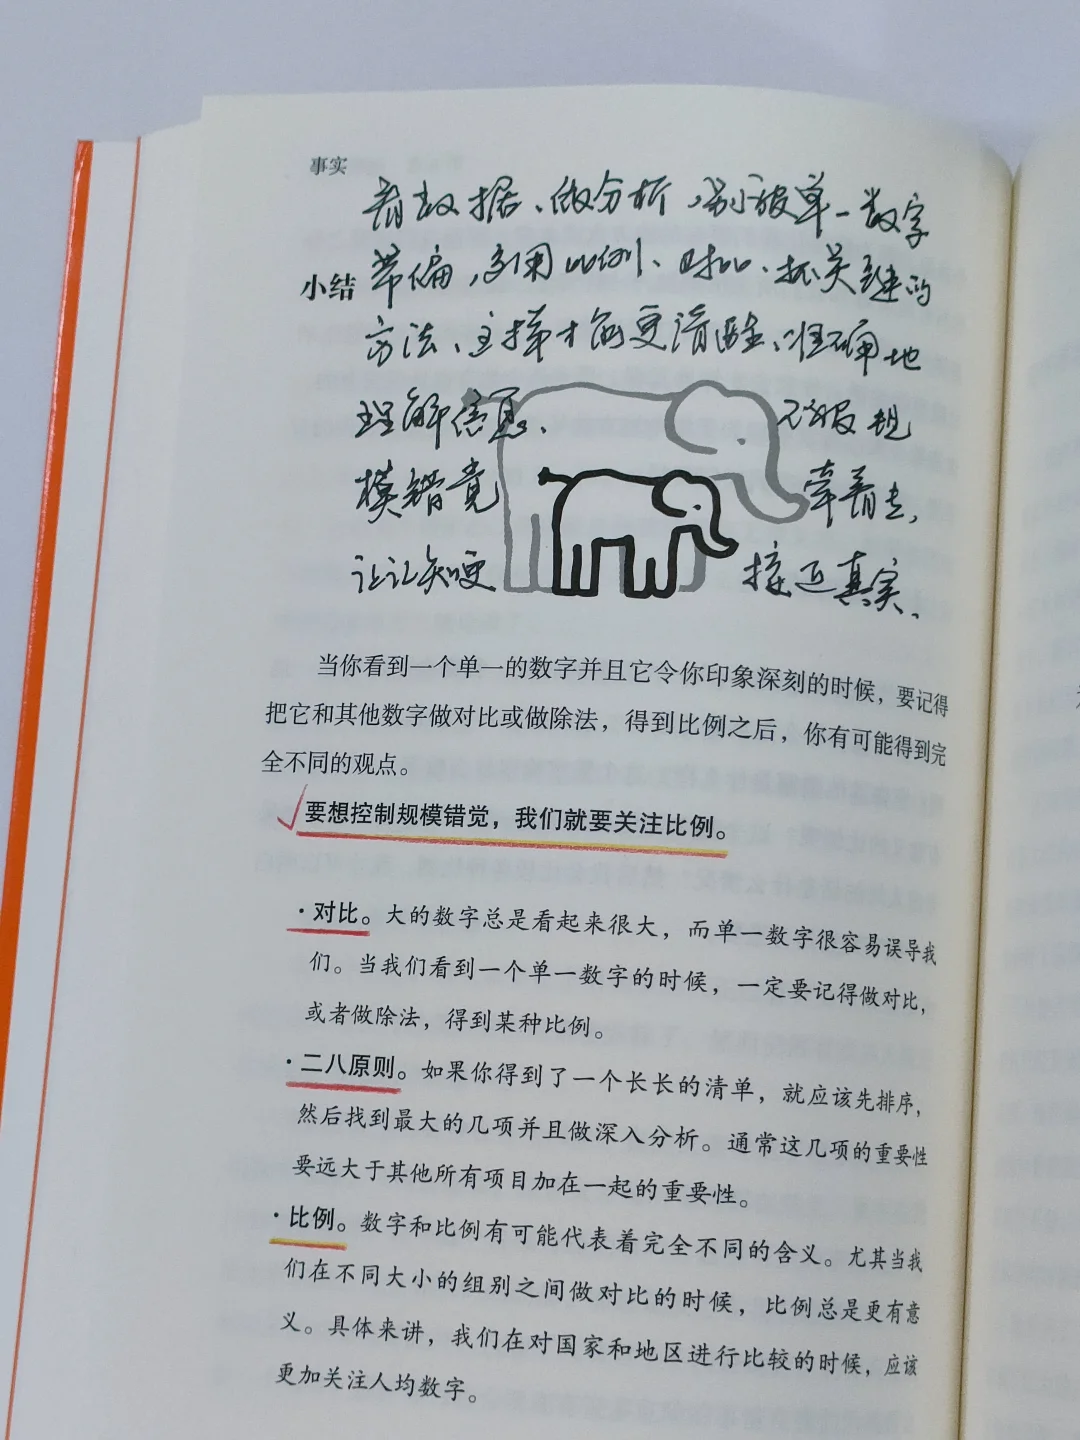 事实
看数据、做分析，别被单一数字
带偏，多用比例、对比、抓关键的
小结
方法、这样才能更清醒、准确地
理解信息、不被规
模错觉 牵着走，
让认知更 接近真实、
当你看到一个单一的数字并且它令你印象深刻的时候，要记得
把它和其他数字做对比或做除法，得到比例之后，你有可能得到完
全不同的观点。
要想控制规模错觉，我们就要关注比例。
·对比。大的数字总是看起来很大，而单一数字很容易误导我
们。当我们看到一个单一数字的时候，一定要记得做对比，
或者做除法，得到某种比例。
·二八原则。如果你得到了一个长长的清单，就应该先排序，
然后找到最大的几项并且做深入分析。通常这几项的重要性
要远大于其他所有项目加在一起的重要性。
·比例。数字和比例有可能代表着完全不同的含义。尤其当我
们在不同大小的组别之间做对比的时候，比例总是更有意
义。具体来讲，我们在对国家和地区进行比较的时候，应该
更加关注人均数字。